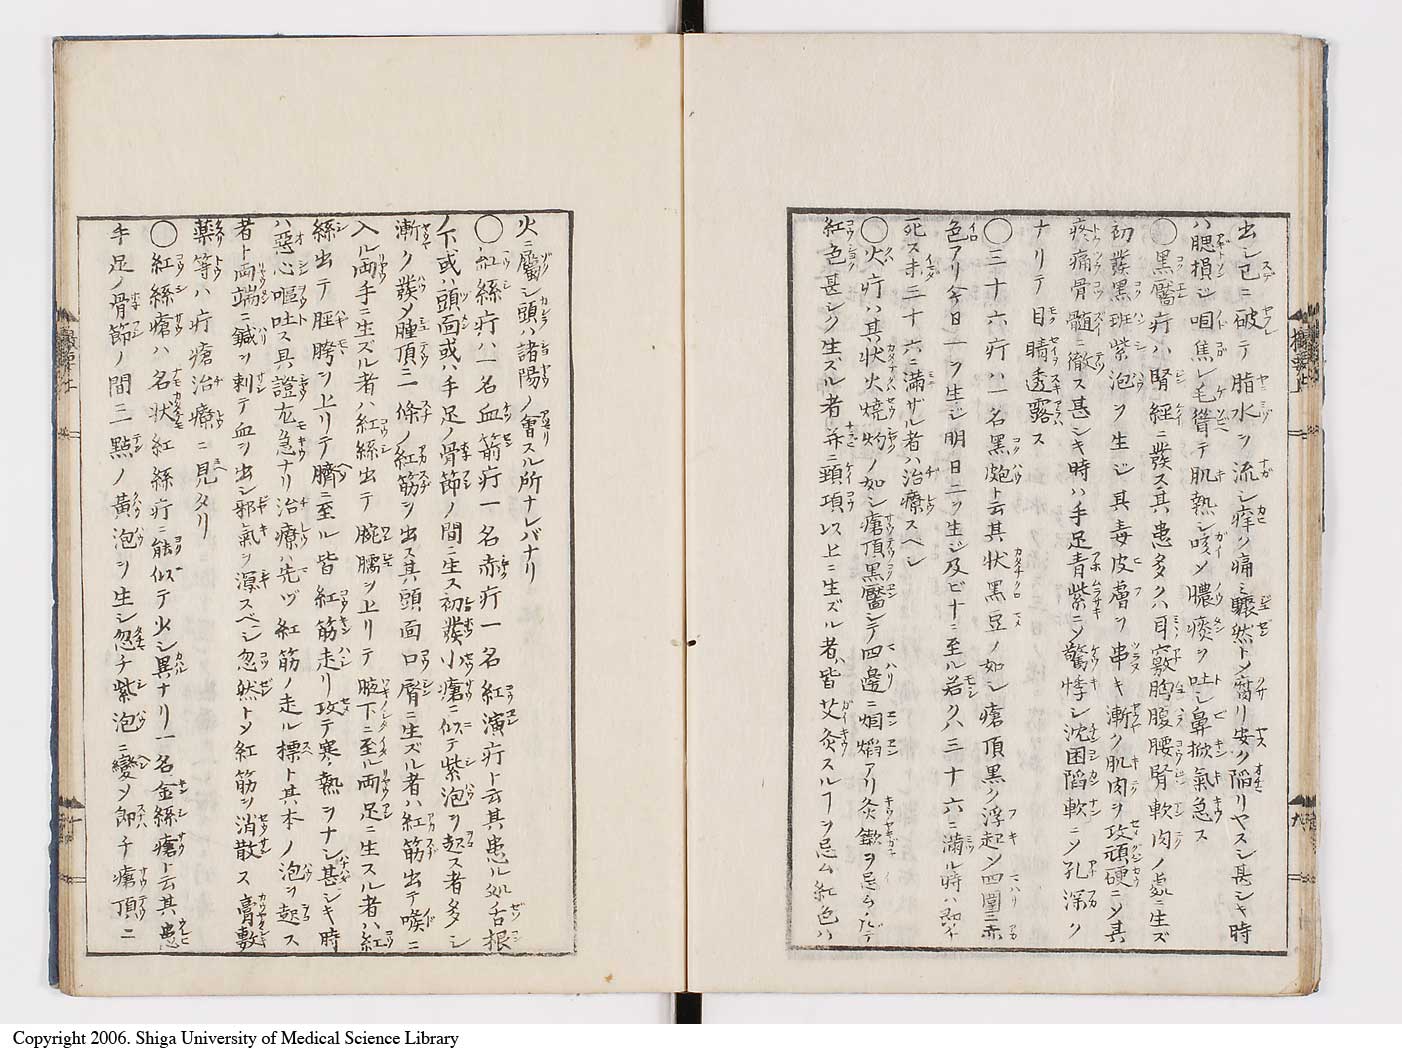 出シ已ニ破テ脂水ヲ流シ痒ク痛ミ驟然トメ腐リ安ク陥リヤスシ甚シキ時
ハ腮損シ咽焦レ毛聳テ肌熱シ咳メ膿痰ヲ吐シ鼻掀氣急ス
〇黒黶疔ハ腎経ニ發ス其患多クハ耳竅胸腹腰腎軟肉ノ處ニ生ズ
初發黒斑紫泡ヲ生ジ其毒皮膚ヲ串キ漸ク肌肉ヲ攻頑硬ニソ其
疼痛骨髄ニ徹ス甚シキ時ハ手足青紫ニソ驚悸シ沈困陥軟ニソ孔深ク
ナリテ目睛透露ス
〇三十六疔ハ一名黒皰ト云其状黒豆ノ如シ瘡頂黒ク浮起シ四圍ニ赤
色アリ今日一ツ生ジ明日二ツ生ジ及ビ十ニ至ル若クハ三十六ニ満ル時ハ即チ
死ス未三十六ニ満ザル者ハ治療スヘシ
〇火疔ハ其状火焼灼ノ如シ瘡頂黒黶シテ四邊ニ烟焔アリ灸鍼ヲ忌ム
紅色甚シク生ズル者并ニ頸項以上ニ生ズル者ハ皆艾灸スルヿヲ忌ム紅色ハ
火ニ屬シ頭ハ諸陽ノ會スル所ナレバナリ
〇紅絲疔ハ一名血箭疔一名赤疔一名紅演疔ト云其患ル処舌根
ノ下或ハ頭面或ハ手足ノ骨節ノ間ニ生ス初發小瘡ニ似テ紫泡ヲ起ス者多シ
漸ク發メ腫頂ニ一條ノ紅筋ヲ出ス其頭面口脣ニ生ズル者ハ紅筋出テ喉ニ
入ル両手ニ生ズル者ハ紅絲出テ腕臑ヲ上リテ腋下ニ至ル両足ニ生スル者ハ紅
絲出テ脛胯ヲ上リテ臍ニ至ル皆紅筋走リ攻テ寒熱ヲナシ甚シキ時
ハ惡心嘔吐ス其證尤急ナリ治療ハ先ヅ紅筋ノ走ル標ト其本ノ泡ヲ起ス
者ト両端ニ鍼ヲ刺テ血ヲ出シ邪氣ヲ瀉スベシ忽然トメ紅筋ヲ消散ス膏敷
藥等ハ疔瘡治療ニ見タリ
〇紅絲瘡ハ名状紅絲疔ニ能似テ少シ異ナリ一名金絲瘡ト云其患
手足ノ骨節ノ間ニ一點ノ黄泡ヲ生シ忽チ紫泡ニ變メ即チ瘡頂ニ
Copyright 2006. Shiga University of Medical Science Library